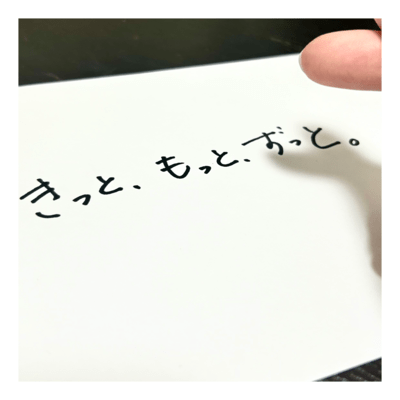 きっと、もっと、ずっと。